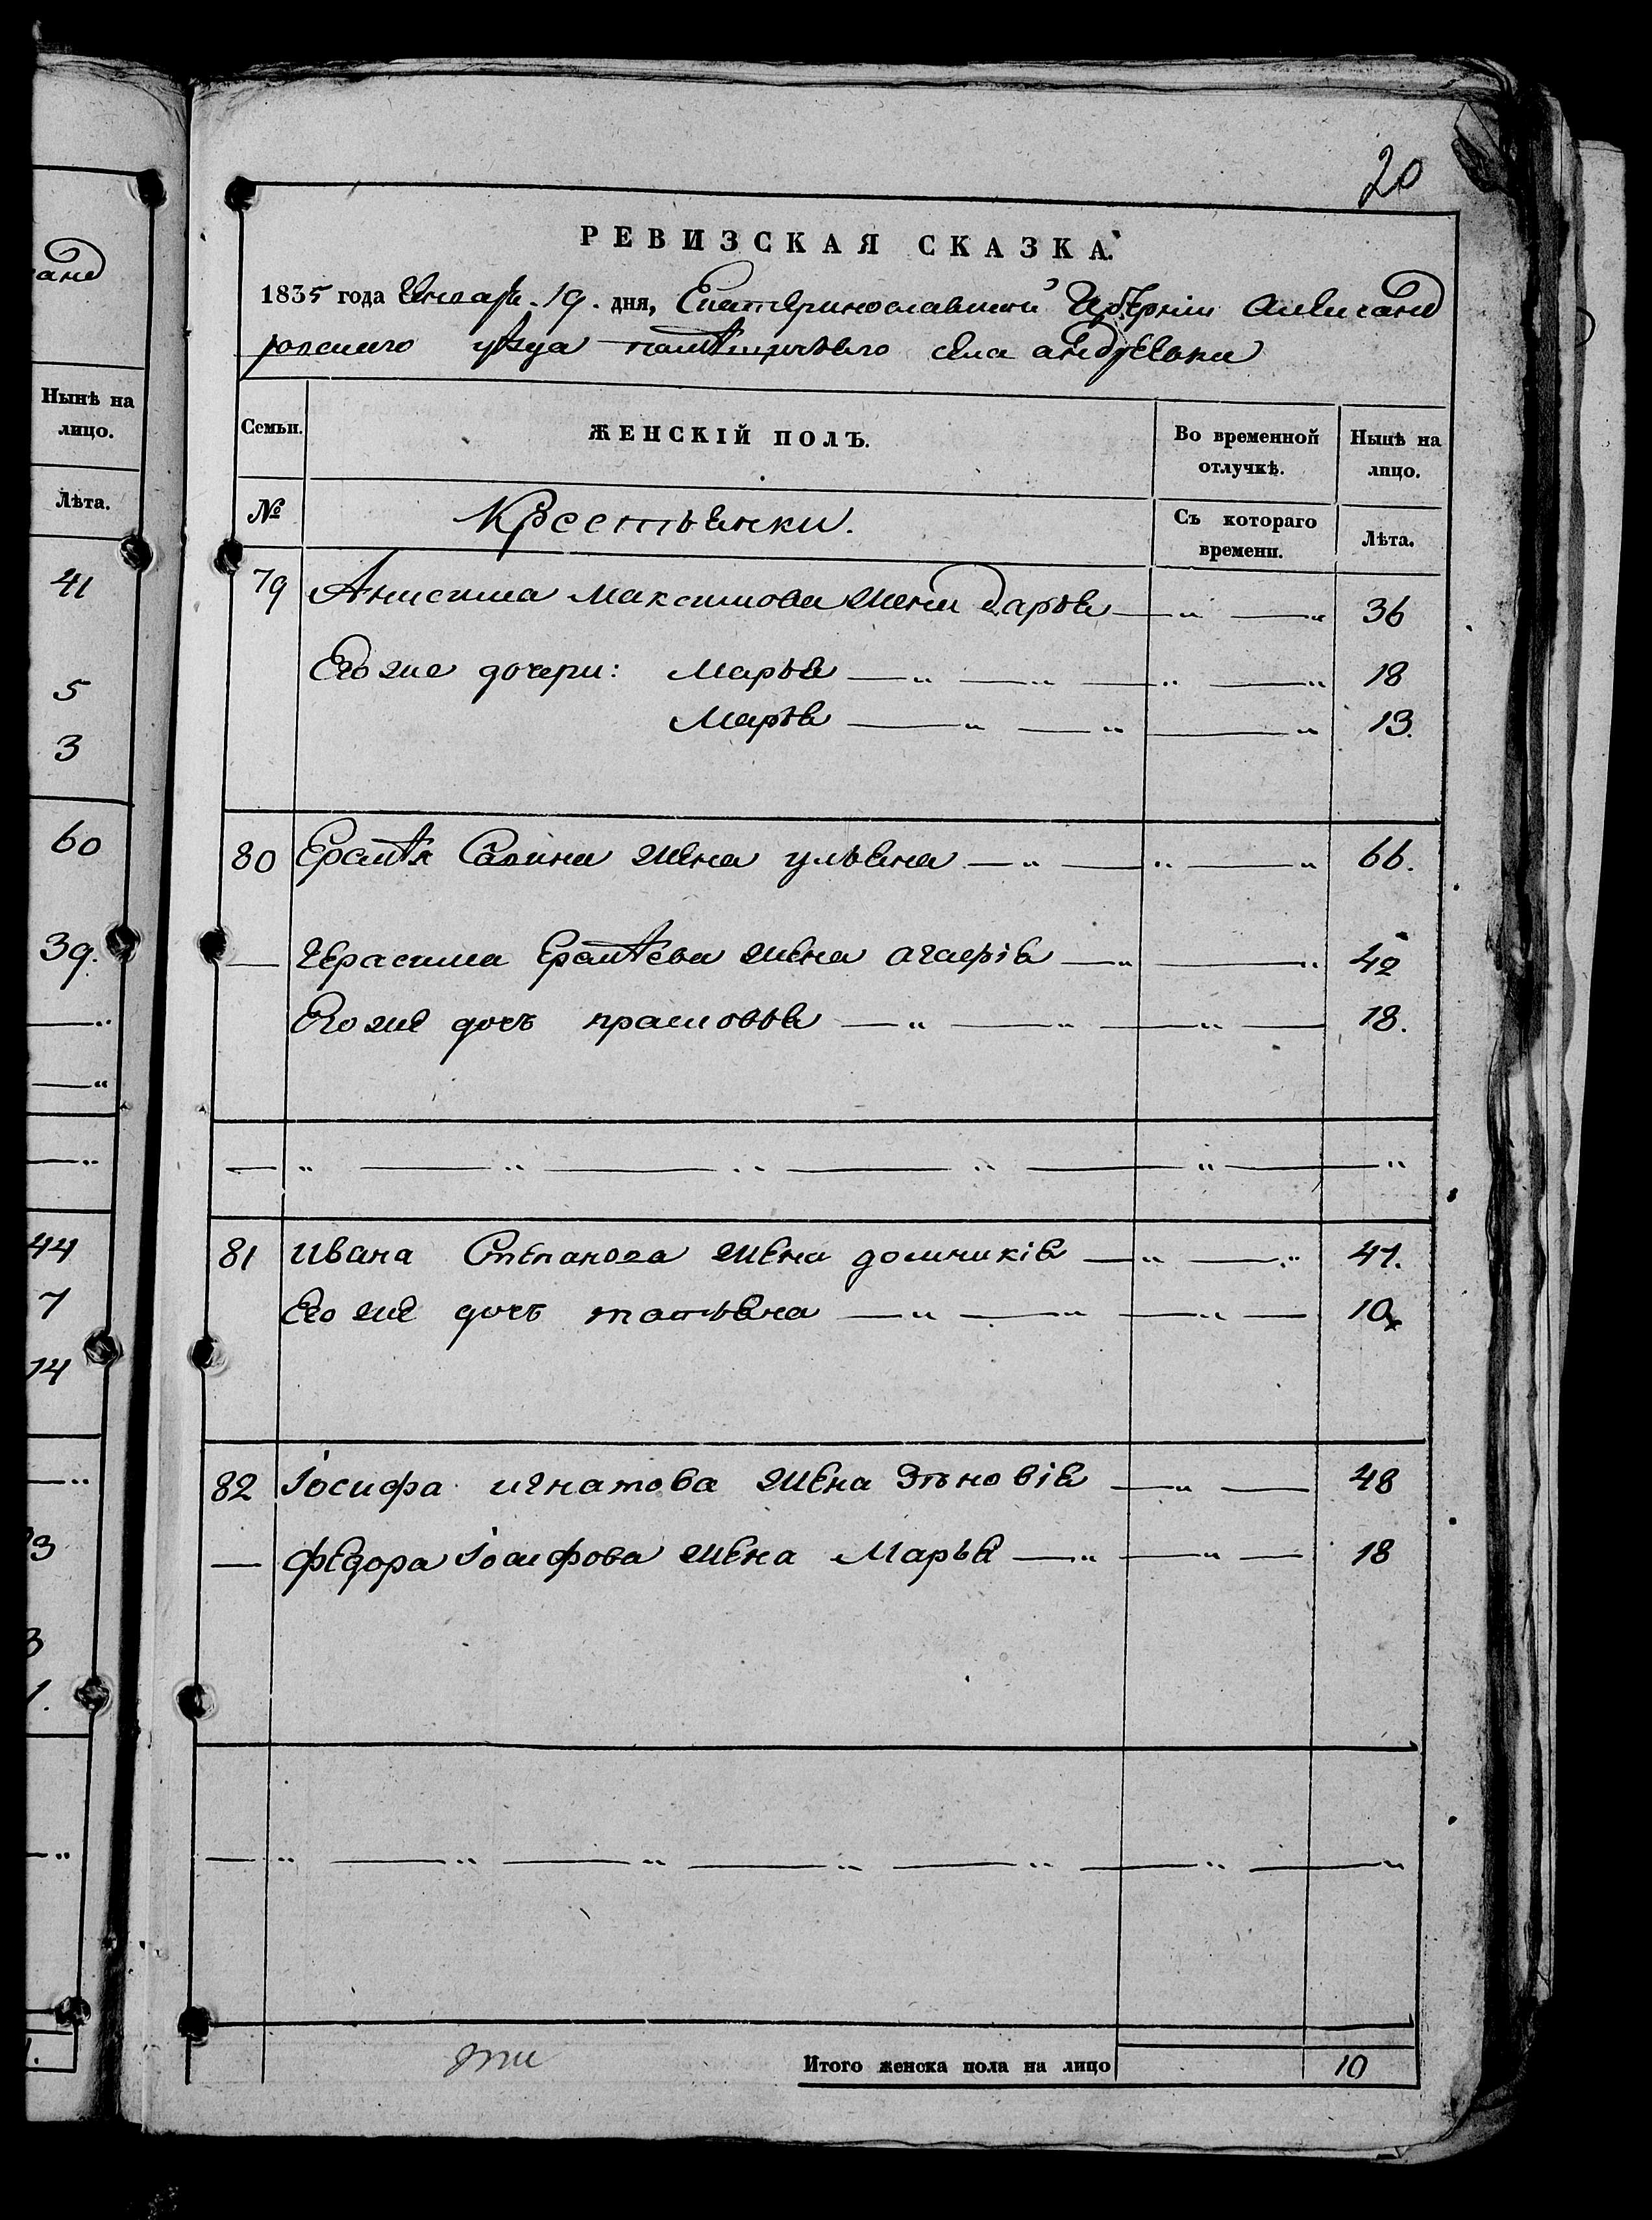 20
РЕВИЗСКАЯ СКАЗКА.
1835 года Января 19. дня, Екатеринославской Губерніи Александ
ровскаго уѣзда помѣщичьяго села андреевки
анд
Нынѣ на лицо.
Лѣта.
41
5
3
60
39.
44
7
14
3
3
Семьи. ЖЕНСКІЙ ПОЛЪ. Во временной отлучкѣ. Нынѣ на лицо.
№ Крестьянки. Съ котораго времени. Лѣта.
79 Анисима Максимова жена Дарья — „ — „ 36
Его же дочери: Марья — „ — „ — „ — „ 18
Марья — „ — „ — „ 13.
80 Еремѣя жена ульяна — „ — „ — „ 66.
— Герасима Еремѣева жена агафія — „ — „ 42
Его же дочь прасковья — „ — „ — „ — 18.
— „ — „ — „ — „ — „ — „
81 ивана Степанова жена домникія — „ — „ 41.
Его же дочь татьяна — „ — „ — „ — 10
82 Іосифа игнатова жена зѣновія — „ — 48
— федора Іосифова жена Марья — „ — „ — 18
— „ — „ — „ — „ — „ — „ — „
Итого женска пола на лицо 10